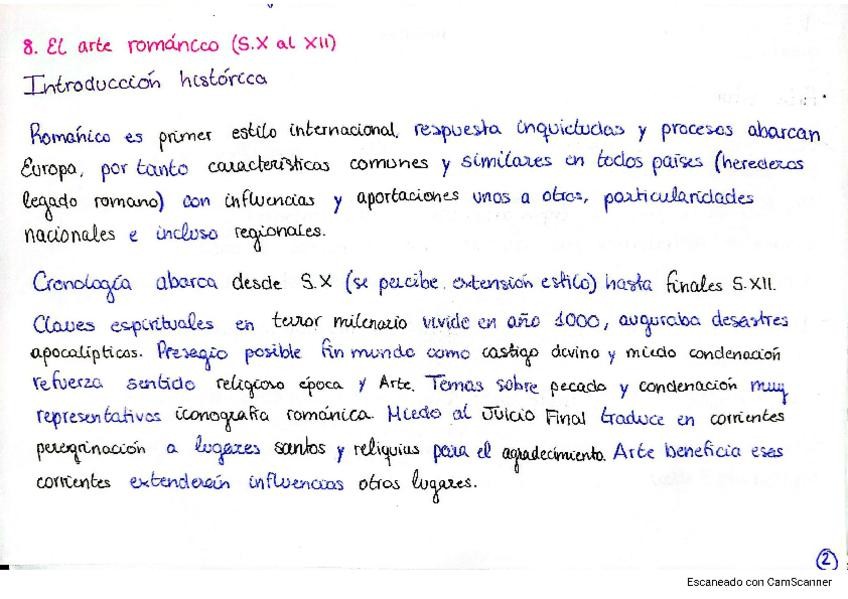 8. El arte románico (S.X al XII)
Introducción histórica
Románico es primer estilo internacional, respuesta inquietudes y procesos abarcan
Europa, por tanto características comunes y similares en todos países (herederos
legado romano) con influencias y aportaciones unos a otros, particularidades
nacionales e incluso regionales.
Cronología abarca desde S.X (se percibe extensión estilo) hasta finales S.XII.
Claves espirituales en terror milenario vivido en año 1000, auguraba desastres
apocalípticos. Presagio posible fin mundo como castigo divino y miedo condenación
refuerza sentido religioso época y Arte. Temas sobre pecado y condenación muy
representativos iconografía románica. Miedo al Juicio Final traduce en corrientes
peregrinación a lugares santos y reliquias para el agradecimiento. Arte beneficia esas
corrientes extenderán influencias otros lugares.
2
Escaneado con CamScanner